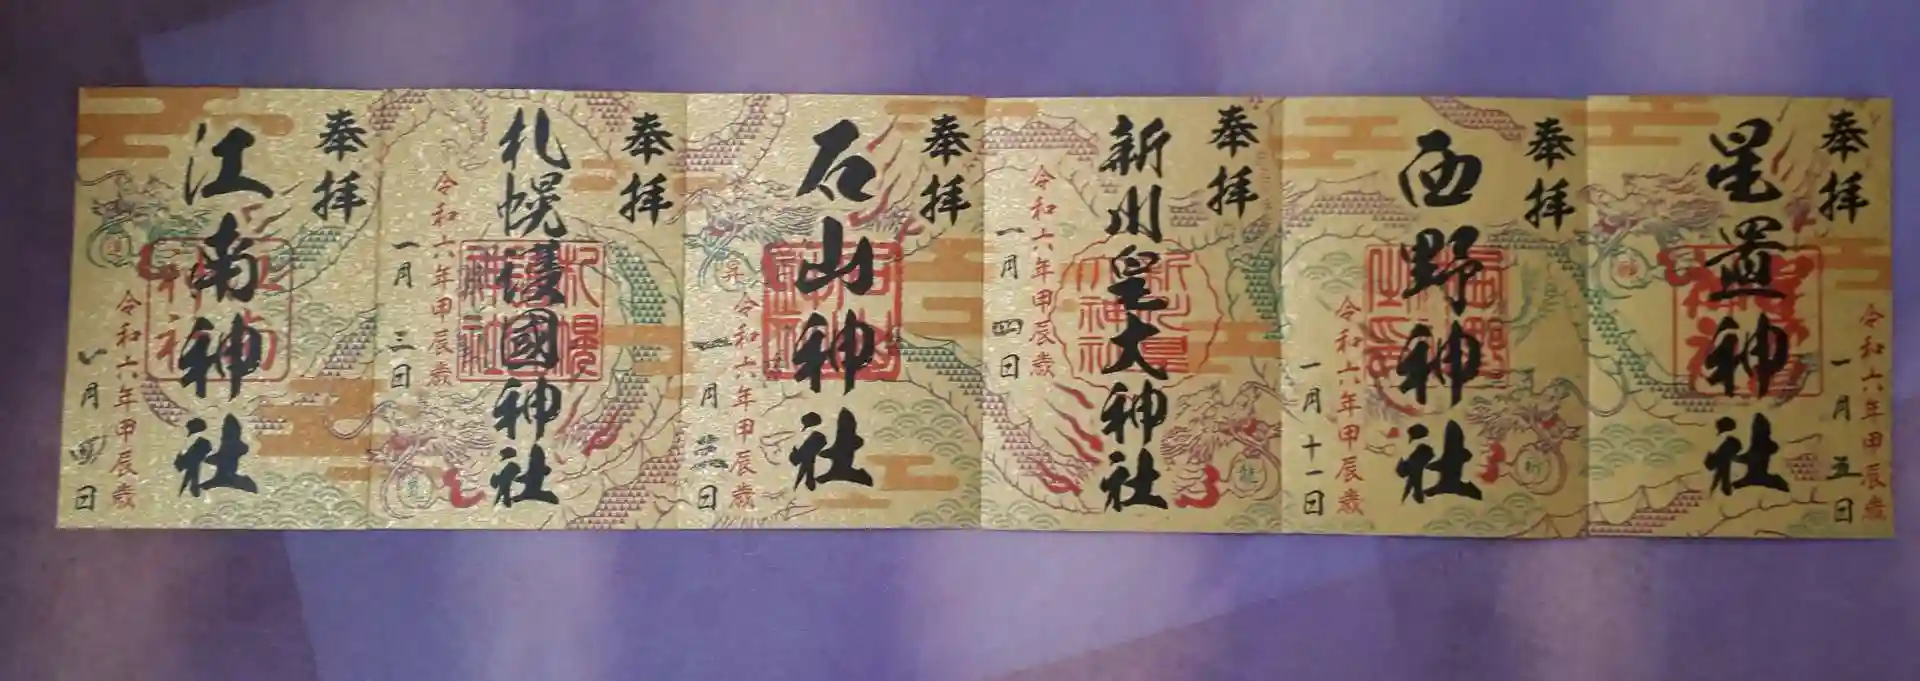 奉拝
星置神社
令和六年甲辰歳
一月五日
奉拝
西野神社
令和六年甲辰歳
一月十一日
奉拝
新川皇大神社
令和六年甲辰歳
一月四日
奉拝
石山神社
令和六年甲辰歳
奉拝
札幌護國神社
令和六年甲辰歳
一月三日
奉拝
江南神社
令和六年甲辰歳
一月四日